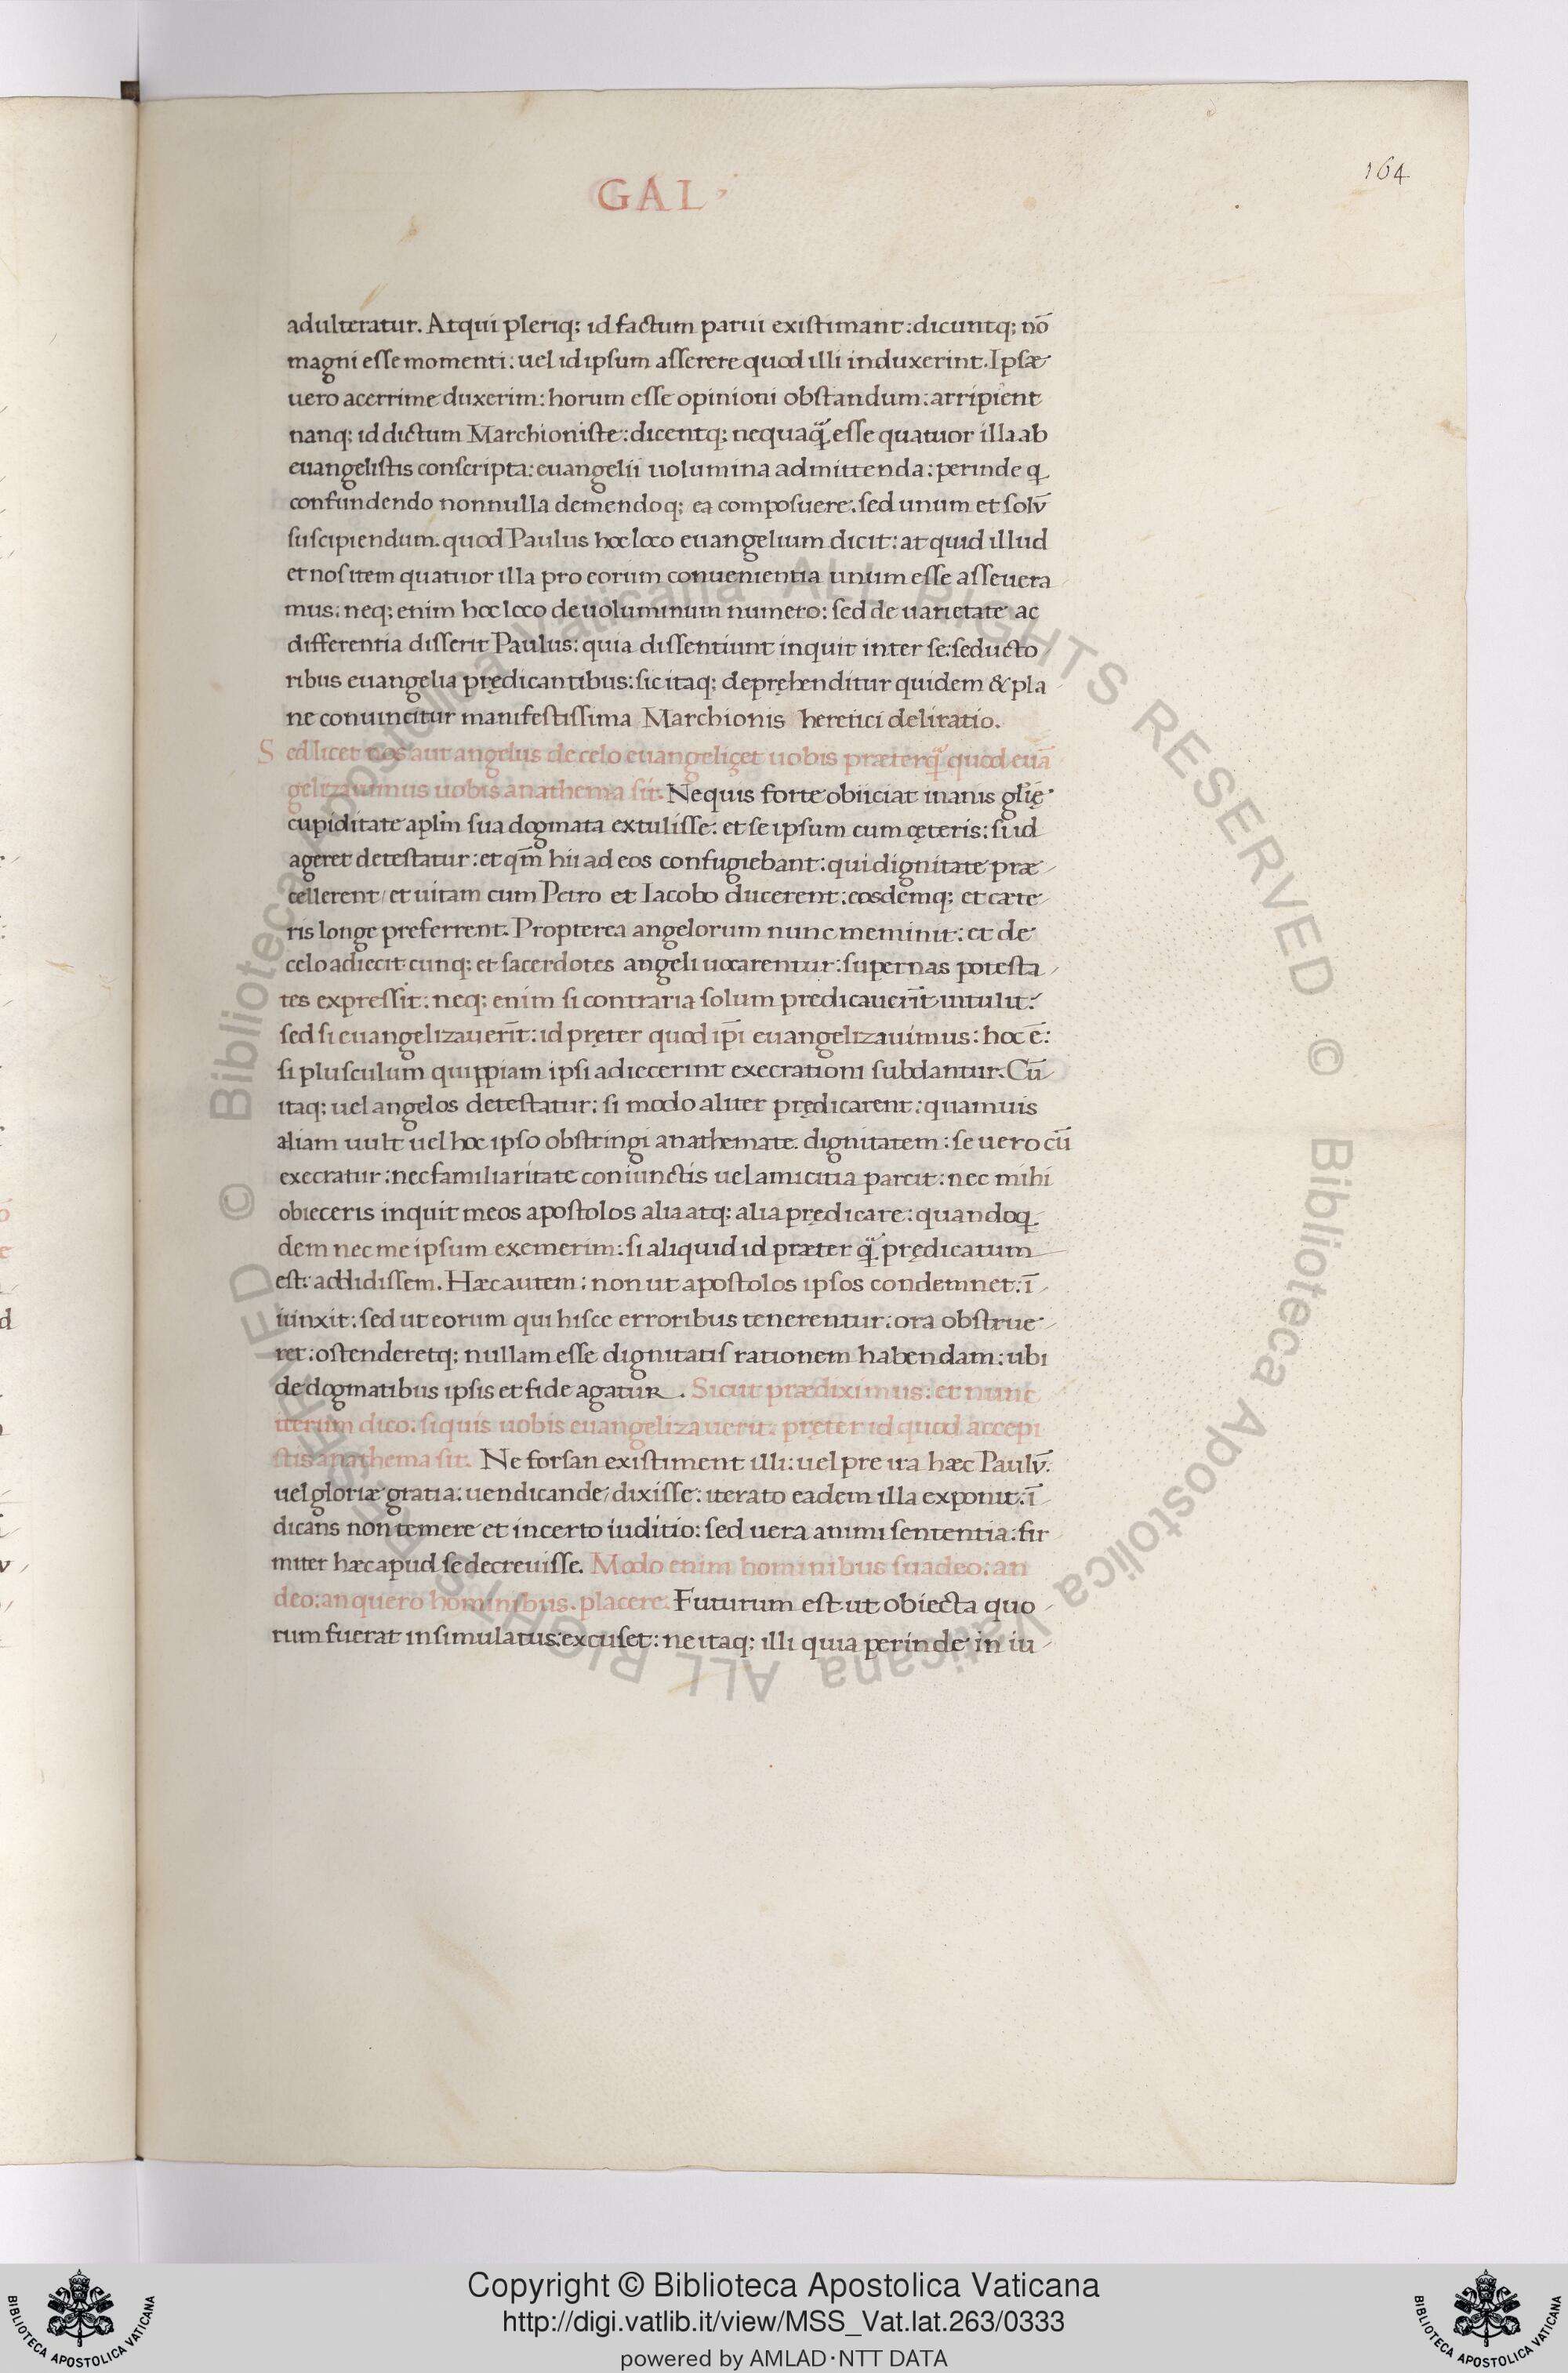 164
GAL
adulteratur. Atqui pleriq; id factum parui existimant: dicuntq; nō
magni esse momenti: uel id ipsum asserere quod illi induxerint. Ipsæ
uero acerrime duxerim: horum esse opinioni obstandum: arripient
nanq; id dictum Marchioniste: dicentq; nequaq̃ esse quatuor illa ab
euangelistis conscripta: euangelii uolumina admittenda: perinde q
confundendo nonnulla demendoq; ea composuere. sed unum et solū
suscipiendum. quod Paulus hoc loco euangelium dicit: at quid illud
et nos item quatuor illa pro eorum conuenientia unum esse asseuera
mus: neq; enim hoc loco de uoluminum numero: sed de uarietate ac
differentia disserit Paulus: quia dissentiunt inquit inter se: seducto
ribus euangelia prędicantibus: sic itaq; deprehenditur quidem & pla
ne conuincitur manifestissima Marchionis heretici deliratio.
Sed licet nos aut angelus de celo euangeliçet uobis præterq̃ quod euā
gelizauimus uobis anathema sit. Nequis forte obiiciat inanis glīę
cupiditate aplm̄ sua dogmata extulisse: et se ipsum cum cęteris: si id
ageret detestatur: et qm̄ hii ad eos confugiebant: qui dignitate præ
cellerent/ et uitam cum Petro et Iacobo ducerent: eosdemq; et cæte
ris longe preferrent. Propterea angelorum nunc meminit: et de
celo adiecit cunq; et sacerdotes angeli uocarentur: supernas potesta
tes expressit: neq; enim si contraria solum predicauerīt intulit:
sed si euangelizauerīt: id pręter quod ip̄i euangelizauimus: hoc ē:
si plusculum quippiam ipsi adiecerint execrationi subdantur. Cū
itaq; uel angelos detestatur: si modo aliter prędicarent: quamuis
aliam uult uel hoc ipso obstringi anathemate. dignitatem: se uero cū
execratur: nec familiaritate coniunctis uel amicitia parcit: nec mihi
obieceris inquit meos apostolos alia atq; alia prędicare: quandoq
dem nec me ipsum exemerim: si aliquid id præter q̃ prędicatum
est: addidissem. Hæc autem: non ut apostolos ipsos condemnet: ī
iunxit: sed ut eorum qui hisce erroribus tenerentur: ora obstrue
ret: ostenderetq; nullam esse dignitatis rationem habendam: ubi
de dogmatibus ipsis et fide agatur. Sicut prædiximus: et nunc
iterum dico. siquis uobis euangelizauerit: pręter id quod accepi
stis anathema sit. Ne forsan existiment illi: uel pre ira hæc Paulū:
uel gloriæ gratia: uendicande/ dixisse: iterato eadem illa exponit: ī
dicans non temere et incerto iuditio: sed uera animi sententia: fir
miter hæc apud se decreuisse. Modo enim hominibus suadeo: an
deo: an quero hominibus. placere. Futurum est ut obiecta quo
rum fuerat insimulatus: excuset: ne itaq; illi quia perinde in iu
© Biblioteca Apostolica Vaticana ALL RIGHTS RESERVED © Biblioteca Apostolica Vaticana ALL RIGHTS RESERVED
Copyright © Biblioteca Apostolica Vaticana
http://digi.vatlib.it/view/MSS_Vat.lat.263/0333
powered by AMLAD·NTT DATA
BIBLIOTECA APOSTOLICA VATICANA
BIBLIOTECA APOSTOLICA VATICANA